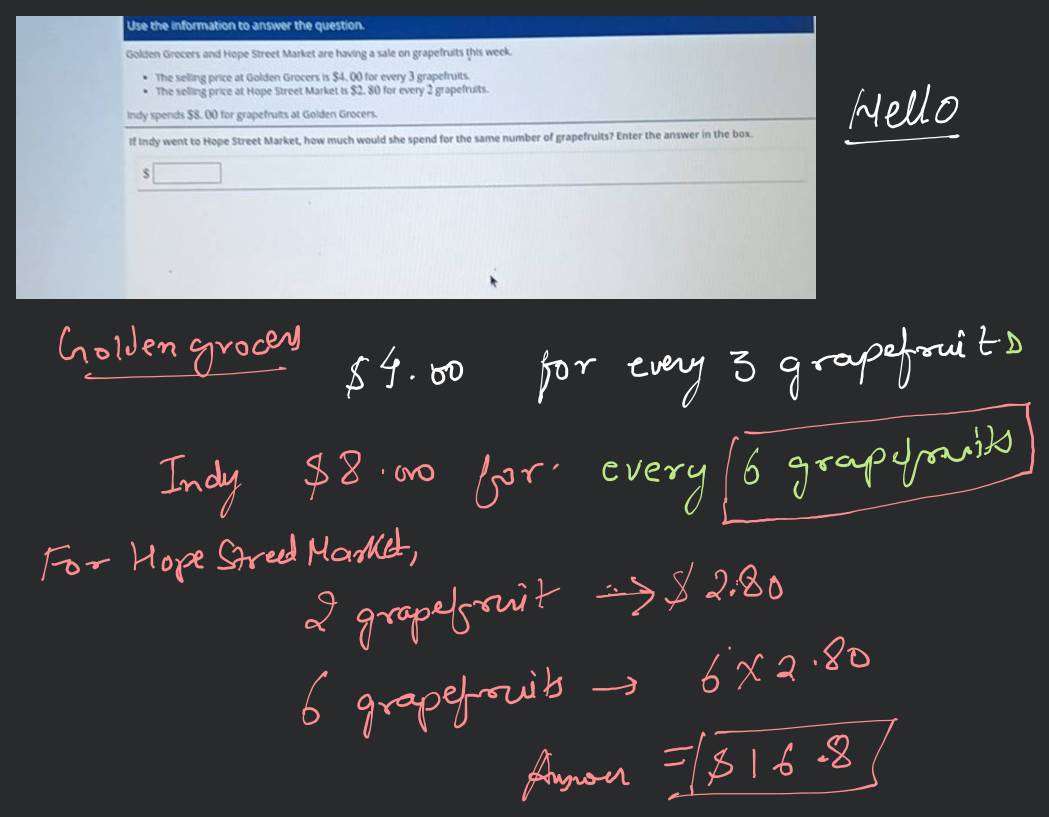 Use the information to answer the question.
Golden Grocers and Hope Street Market are having a sale on grapefruits this week.
• The selling price at Golden Grocers is $4.00 for every 3 grapefruits.
• The selling price at Hope Street Market is $2.80 for every 2 grapefruits.
Indy spends $8.00 for grapefruits at Golden Grocers.
If Indy went to Hope Street Market, how much would she spend for the same number of grapefruits? Enter the answer in the box.
$
Hello
Golden grocers
$4.00 for every 3 grapefruits
Indy $8.00 for every 6 grapefruits
For Hope Street Market,
2 grapefruit → $2.80
6 grapefruits → 6 x 2.80
Answer = $16.8